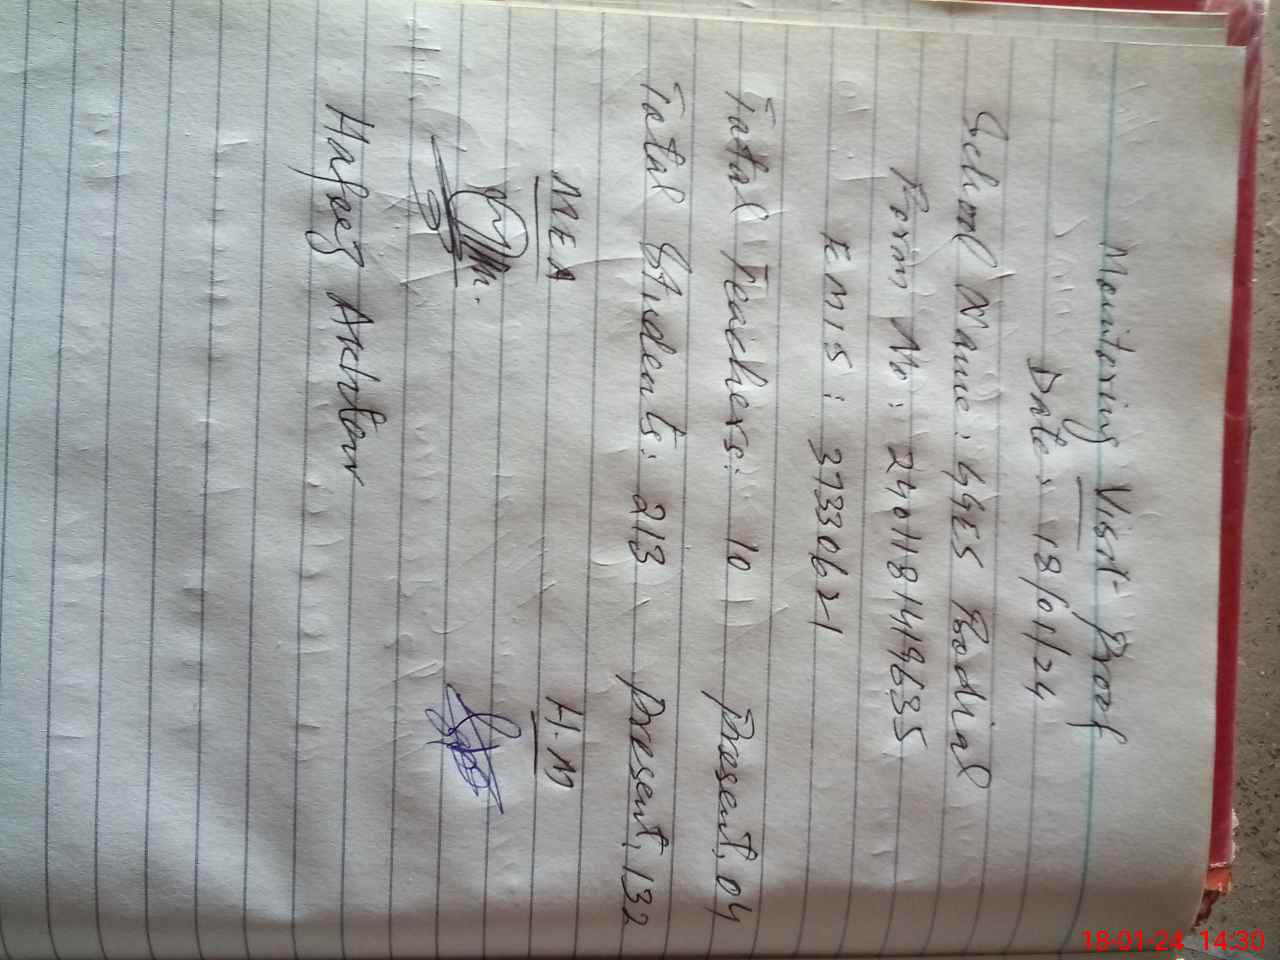 Monitoring Visit Proof
Date: 18/01/24
School Name: GGES Rodial
Form No: 240118141419635
EMIS: 37330621
Total Teachers: 10 Present, 04
Total Students: 213 Present, 132
MEA H.M
Hafeez Akhtar
18-01-24 14:30